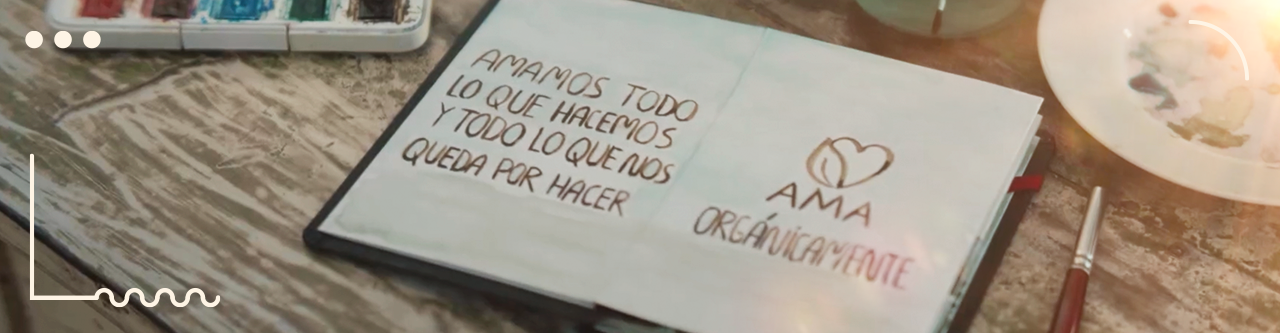 AMAMOS TODO
LO QUE HACEMOS
Y TODO LO QUE NOS
QUEDA POR HACER
AMA
ORGÁNICAMENTE